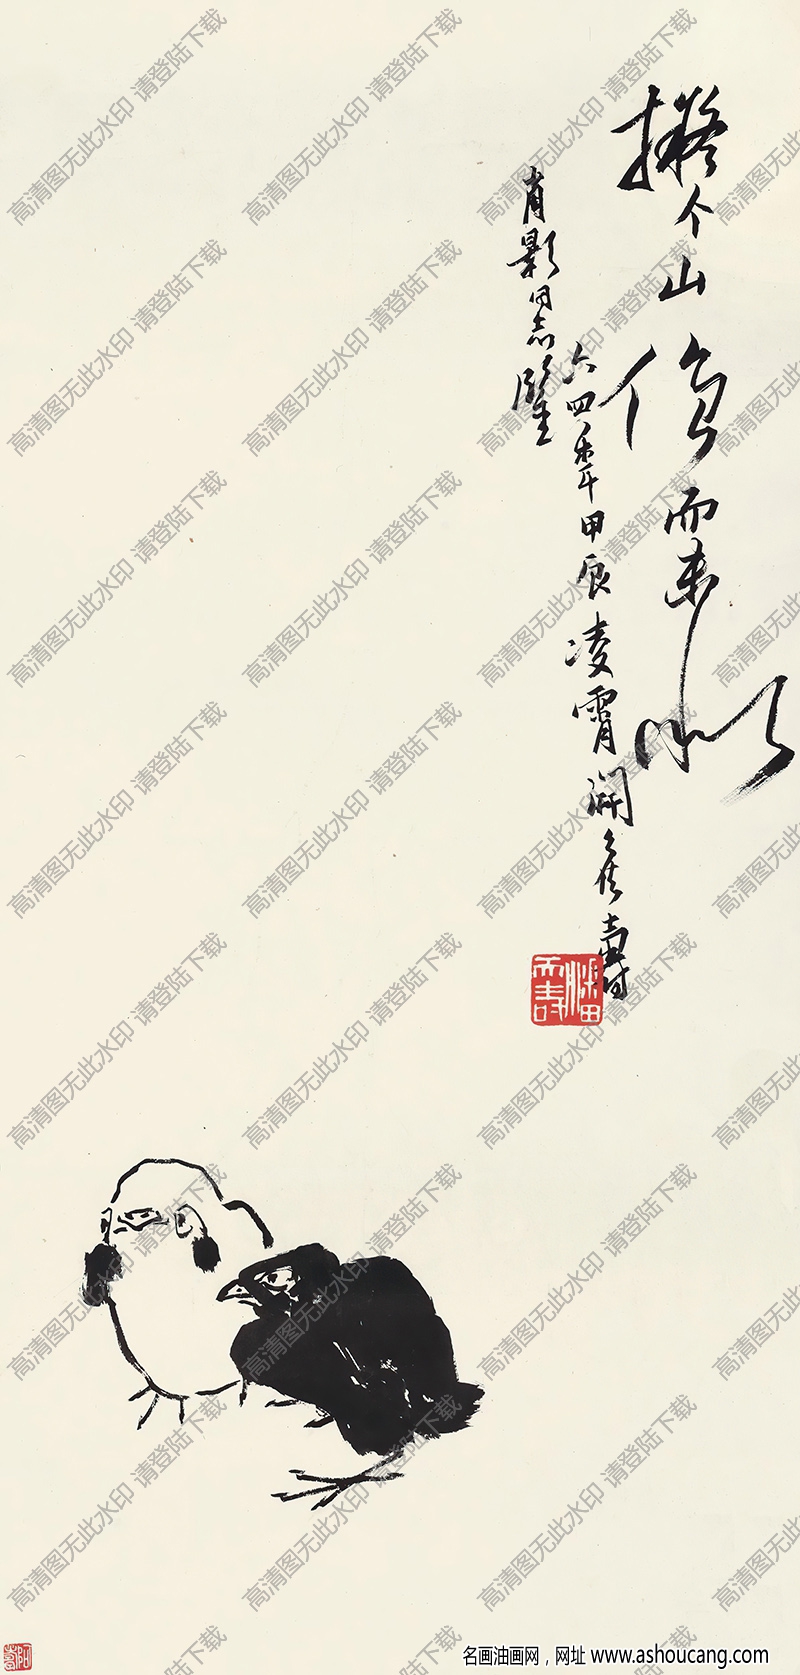 擬个山僧而未似
六四年甲辰凌霄開之候壽
肖影同志鑒
潘天壽
阿壽
高清图无此水印 请登陆下载
名画油画网，网址 www.ashoucang.com